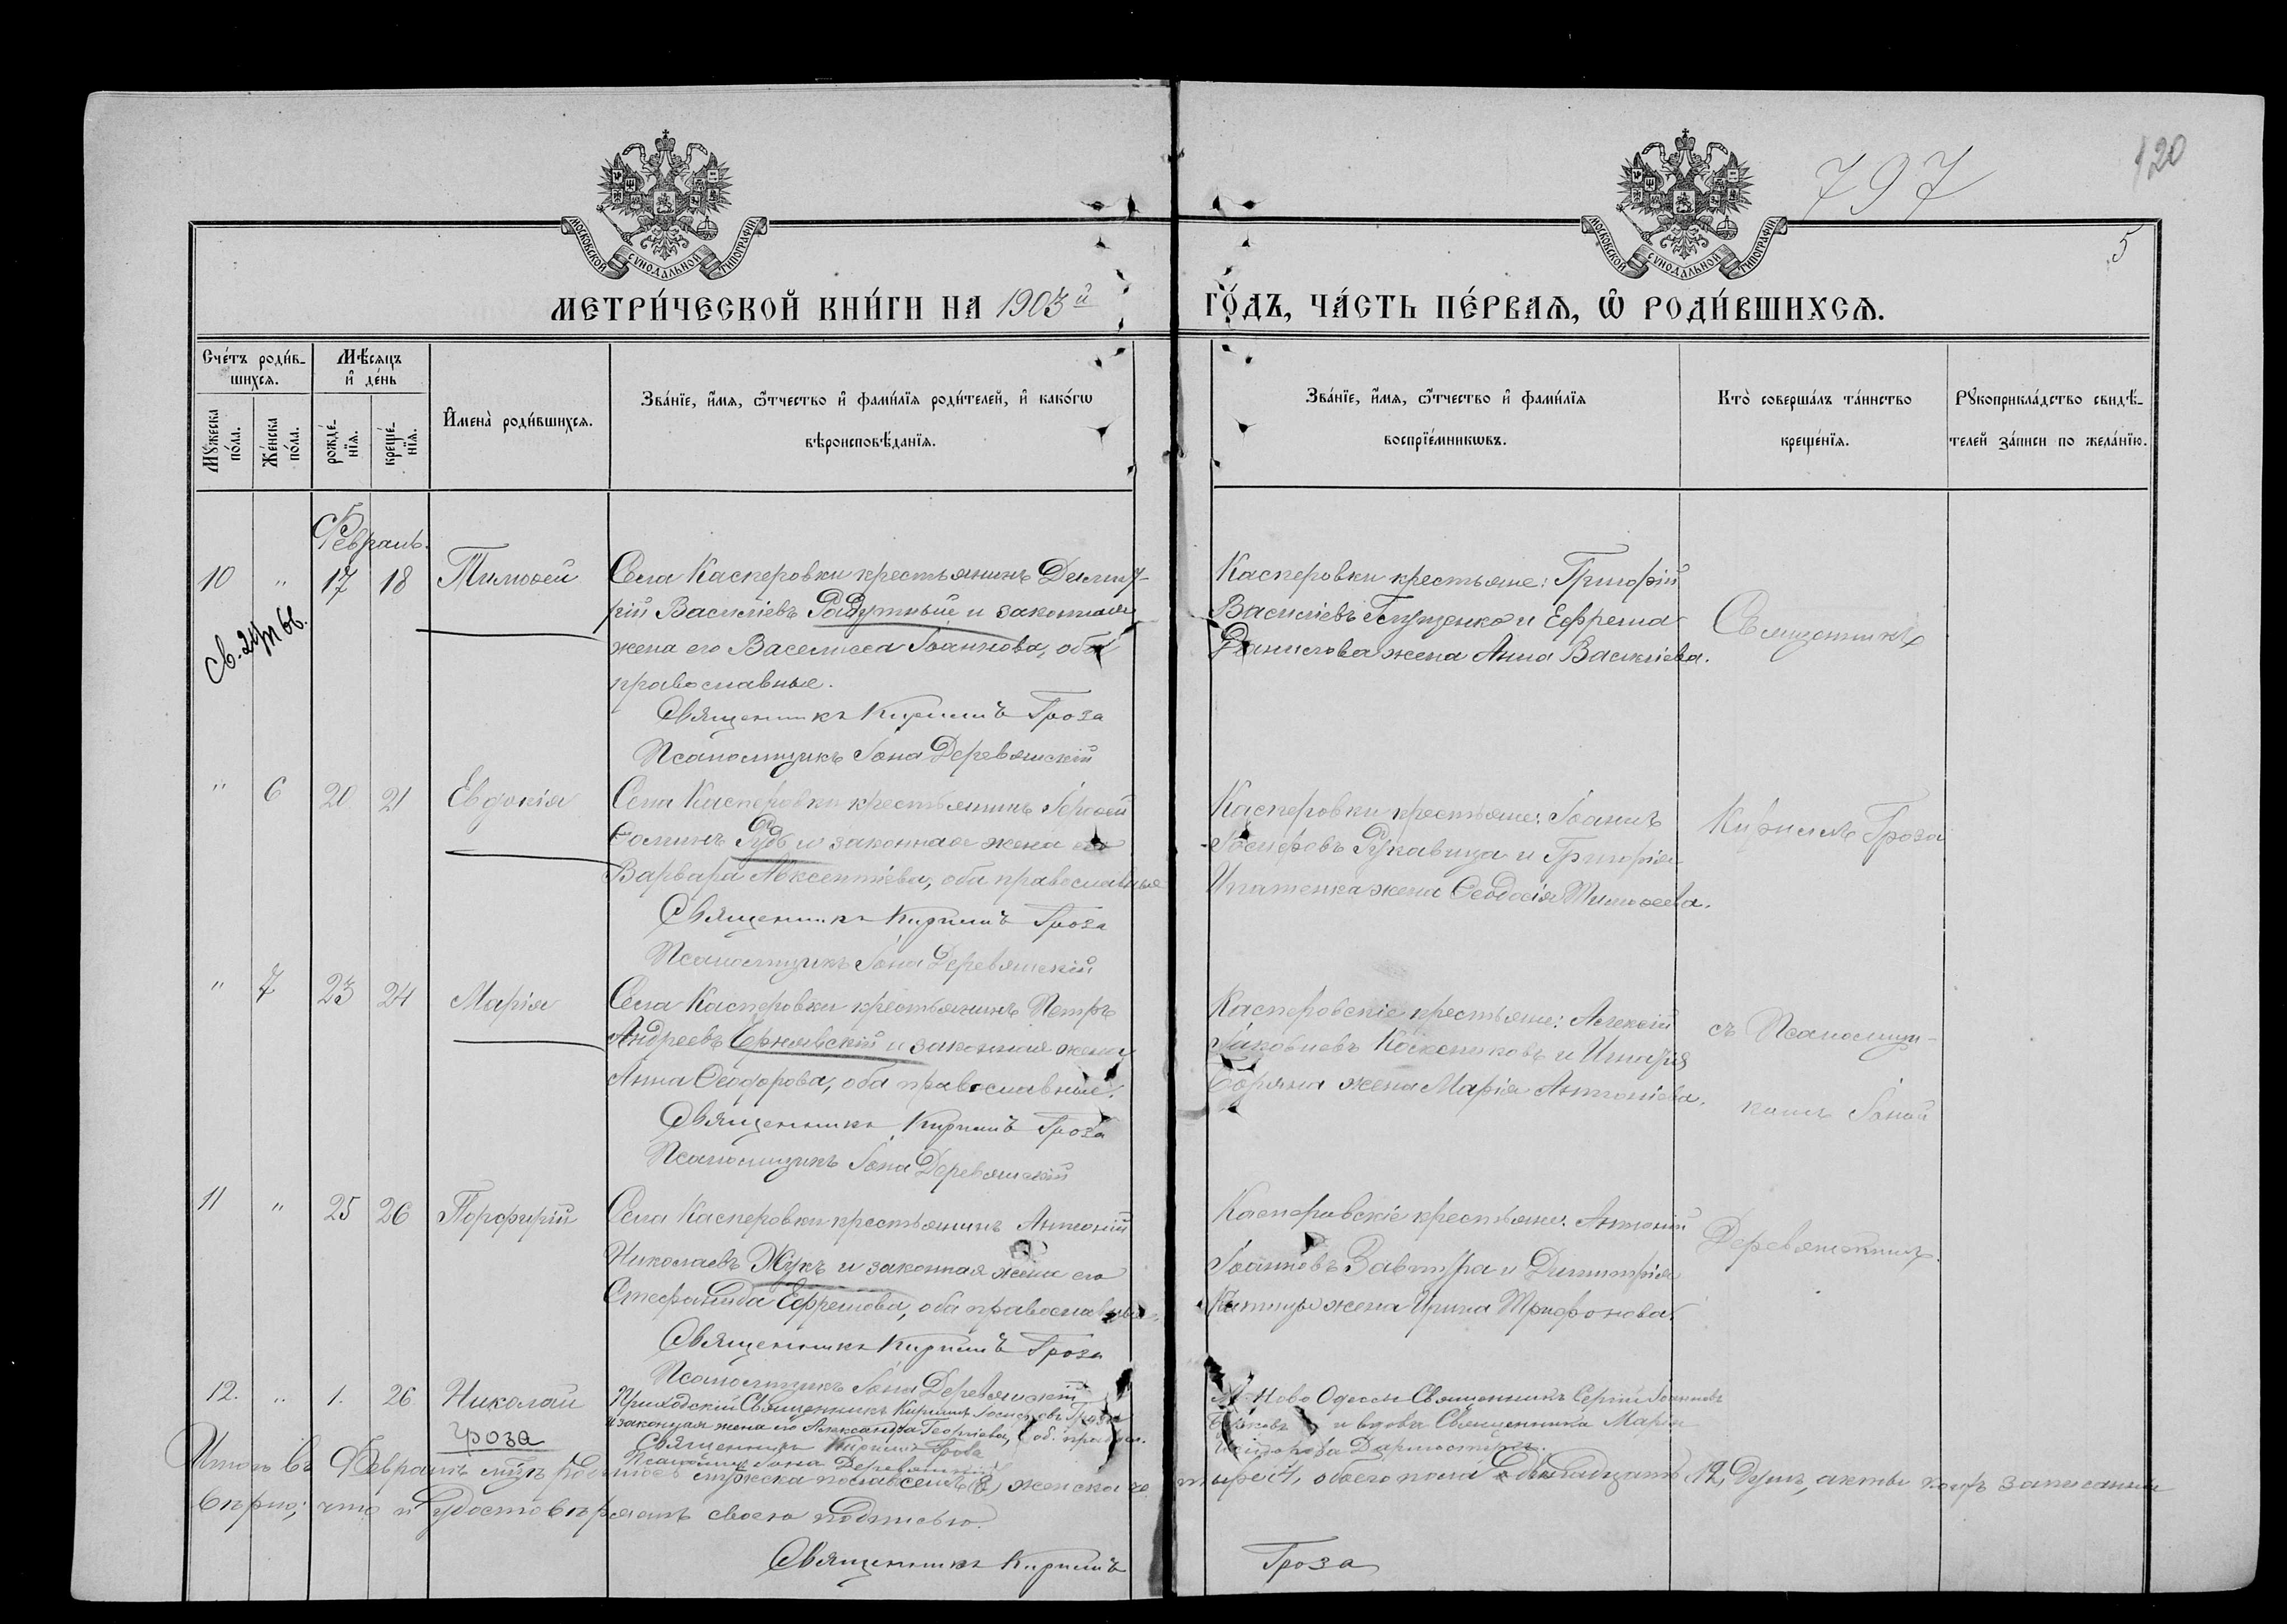 797
120
5
МОСКОВСКОЙ СѴНОДАЛЬНОЙ ТИПОГРАФІИ
МОСКОВСКОЙ СѴНОДАЛЬНОЙ ТИПОГРАФІИ
МЕТРИ́ЧЕСКОЙ КНИ́ГИ НА 1903й ГО́ДЪ, ЧА́СТЬ ПЕ́РВАѦ, Ѡ҆ РОДИ́ВШИХСѦ.
Сче́тъ роди́в-
шихсѧ.
Мѣ́сѧцъ
и҆ де́нь
Мꙋ́жеска
по́ла.
Же́нска
по́ла.
рожде́-
нїѧ.
креще́-
нїѧ.
И҆мена̀ роди́вшихсѧ.
Зва́нїе, и҆́мѧ, ѻ҆́тчество и҆ фами́лїѧ роди́телей, и҆ како́гѡ
вѣроисповѣ́данїѧ.
Зва́нїе, и҆́мѧ, ѻ҆́тчество и҆ фами́лїѧ
воспрїе́мникѡвъ.
Кто̀ соверша́лъ та́инство
креще́нїѧ.
Рꙋкоприкла́дство свидѣ́-
телей за́писи по жела́нїю.
Февраль.
10 " 17 18 Тимоѳей
Села Касперовки крестьянинъ Димит-
рій Василіевъ Радутный и законная
жена его Васелисса Іоаннова, оба
православные.
Священникъ Кириллъ Гроза
Псаломщикъ Іона Деревянскій
Касперовки крестьяне: Григорій
Василіевъ Глущенко и Ефрема
Данилова жена Анна Василіева.
Священникъ
" 6 20 21 Евдокія
Села Касперовки крестьянинъ
Ѳоминъ Рудь и законная жена его
Варвара Авксентіева, оба православные
Священникъ Кириллъ Гроза
Псаломщикъ Іона Деревянскій
Касперовки крестьяне: Іоаннъ
Іосифовъ Рукавица и Григорія
Игнатенка жена Ѳеодосія Тимоѳеева.
Кириллъ Гроза
" 7 23 24 Марія
Села Касперовки крестьянинъ Петръ
Андреевъ и законная жена
Анна Ѳеодорова, оба православные.
Священникъ Кириллъ Гроза
Псаломщикъ Іона Деревянскій
Касперовскіе крестьяне: Алексій
Іаковлевъ и
жена Марія Антоніева.
съ Псаломщи-
комъ Іоной
11 " 25 26 Порфирій
Села Касперовки крестьянинъ Антоній
Николаевъ Жукъ и законная жена его
Стефанида Ефремова, оба православные.
Священникъ Кириллъ Гроза
Псаломщикъ Іона Деревянскій
Касперовскіе крестьяне: Антоній
Іоанновъ Завтура и Димитрія
жена Ирина Трифонова.
Деревянскимъ.
12. " 1. 26 Николай
Гроза
Приходскій Священникъ Кириллъ Гроза
и законная жена его Александра Георгіева, об. правосл.
Священникъ Кириллъ Гроза
Псаломщикъ Іона Деревянскій
Ново Одессы Священникъ Сергій Іоанновъ
и вдова Священника Марія
Итого въ Февралѣ мужска пола восемь (8), женска че тыре 4, обоего пола двѣнадцать 12 душъ, акты коихъ записаны
вѣрно; что и удостовѣряемъ своею подписью.
Священникъ Кириллъ Гроза